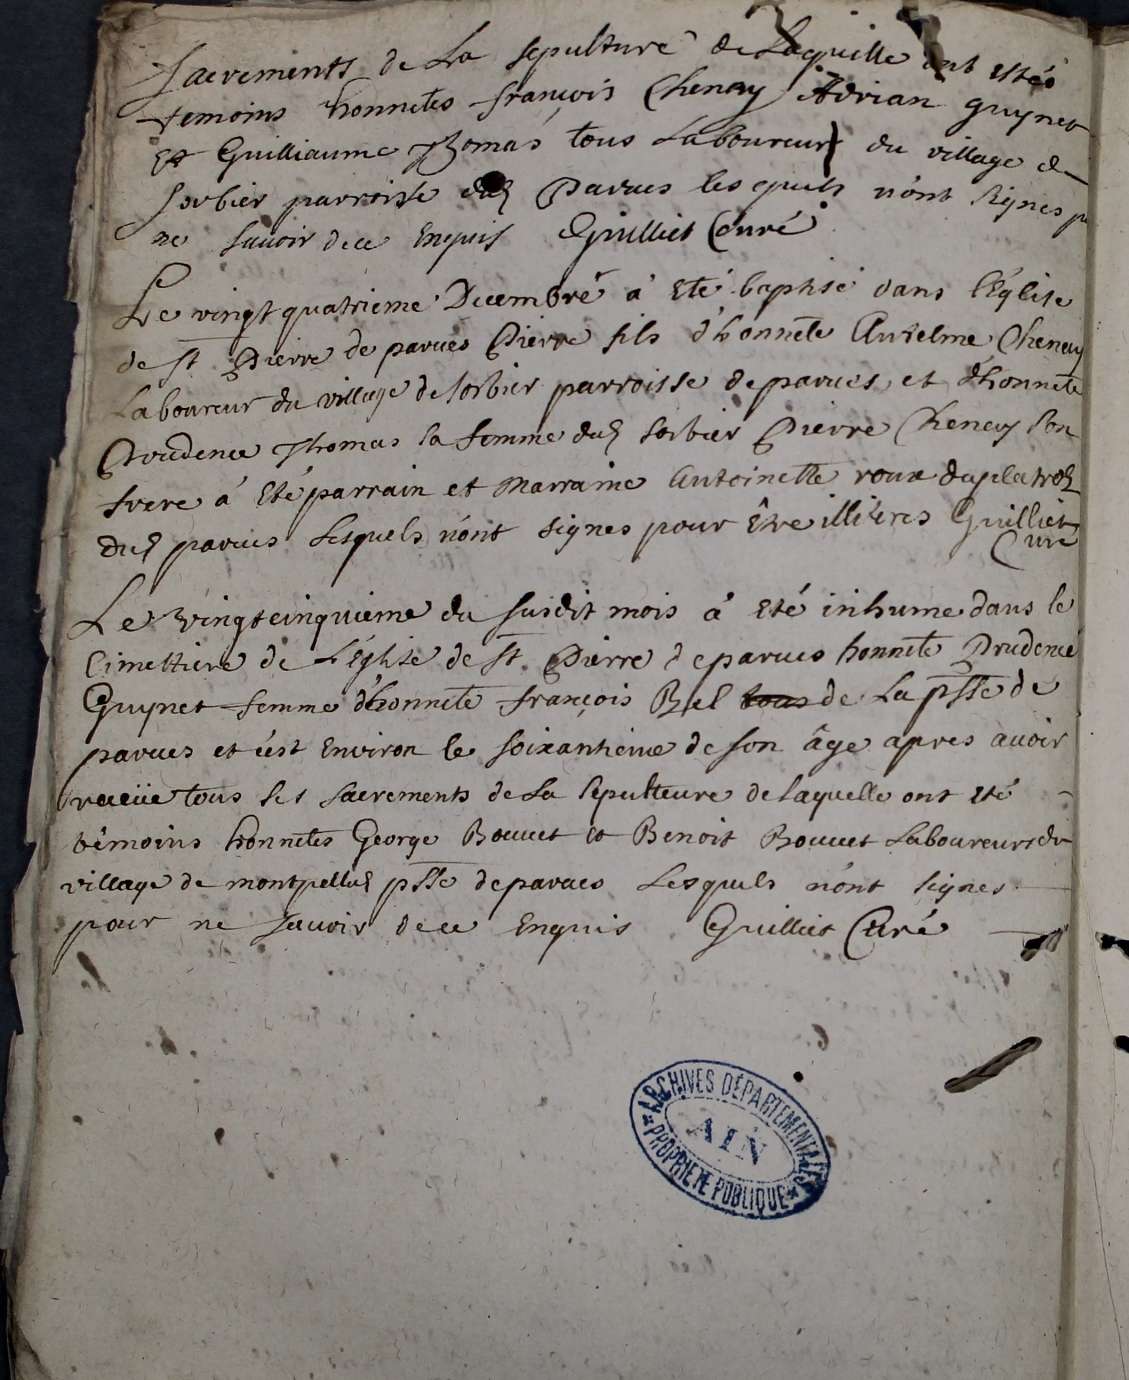 sacrements de La sepulture de Laquelle ont estés
temoins honnetes françois Cheney Adrian guynet
Et Guilliaume Thomas tous Laboureurs du village de
sorbier parroisse dud Parues lesquels n'ont signes p
ne sauoir de ce Enquis Guilliet Curé
Le vingt quatrieme Decembre a Eté baptisé dans l'Église
de st Pierre de parues Pierre fils d'honnete Antelme Cheney
Laboureur du village de sorbier parroisse de parues et d'honnete
Prudence Thomas sa femme dud sorbier Pierre Cheney son
frere à Eté parrain et marraine Antoinette roux
dud parues Lesquels n'ont signes pour Être illiteres Guilliet
Curé
Le vingtcinquieme du susdit mois à Eté inhume dans le
Cimettiere de L'église de st Pierre de parues honnete Prudence
Guynet femme d'honnete françois Bel tous de La psse de
parues et c'est Environ le soixantieme de son âge apres auoir
receüe tous les sacrements de La sepulteure de laquelle ont Eté
témoins honnetes George Bouuet et Benoit Bouuet Laboureurs du
village de montpellus psse de parues Lesquels n'ont signes
pour ne sauoir de ce Enquis Guilliet Curé
ARCHIVES DÉPARTEMENTALES
AIN
PROPRIETE PUBLIQUE